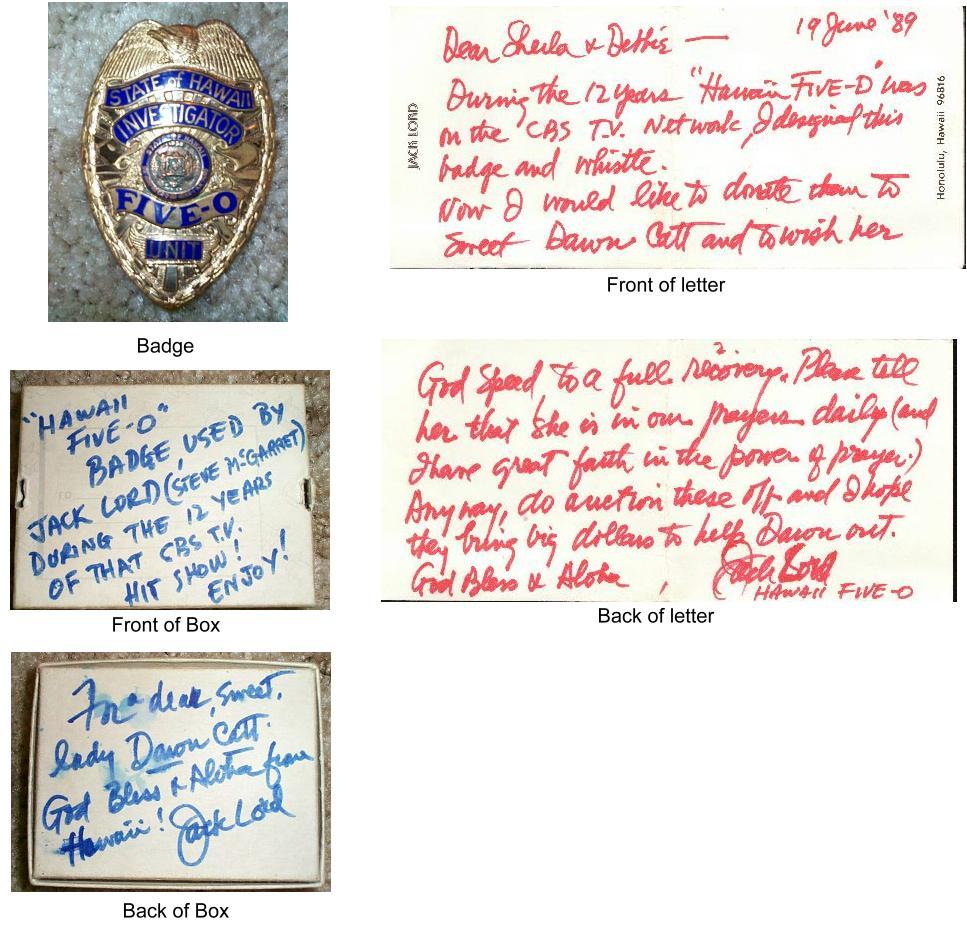 STATE of HAWAII
INVESTIGATOR
STATE OF HAWAII
FIVE-O
UNIT
Badge
"HAWAII
FIVE-O"
BADGE USED BY
JACK LORD (STEVE McGARRET)
DURING THE 12 YEARS
OF THAT CBS T.V.
HIT SHOW!
ENJOY!
Front of Box
For a dear, sweet,
lady Dawn Catt.
God Bless & Aloha from
Hawaii! Jack Lord
Back of Box
JACK LORD
Honolulu, Hawaii 96816
19 June '89
Dear Sheila & Debbie —
During the 12 years "Hawaii FIVE-O" was
on the CBS T.V. Network I designed this
badge and whistle.
Now I would like to donate them to
sweet Dawn Catt and to wish her
Front of letter
2
God Speed to a full recovery. Please tell
her that she is in our prayers daily (and
I have great faith in the power of prayer.)
Anyway, do auction these off and I hope
they bring big dollars to help Dawn out.
God Bless & Aloha, Jack Lord
HAWAII FIVE-O
Back of letter